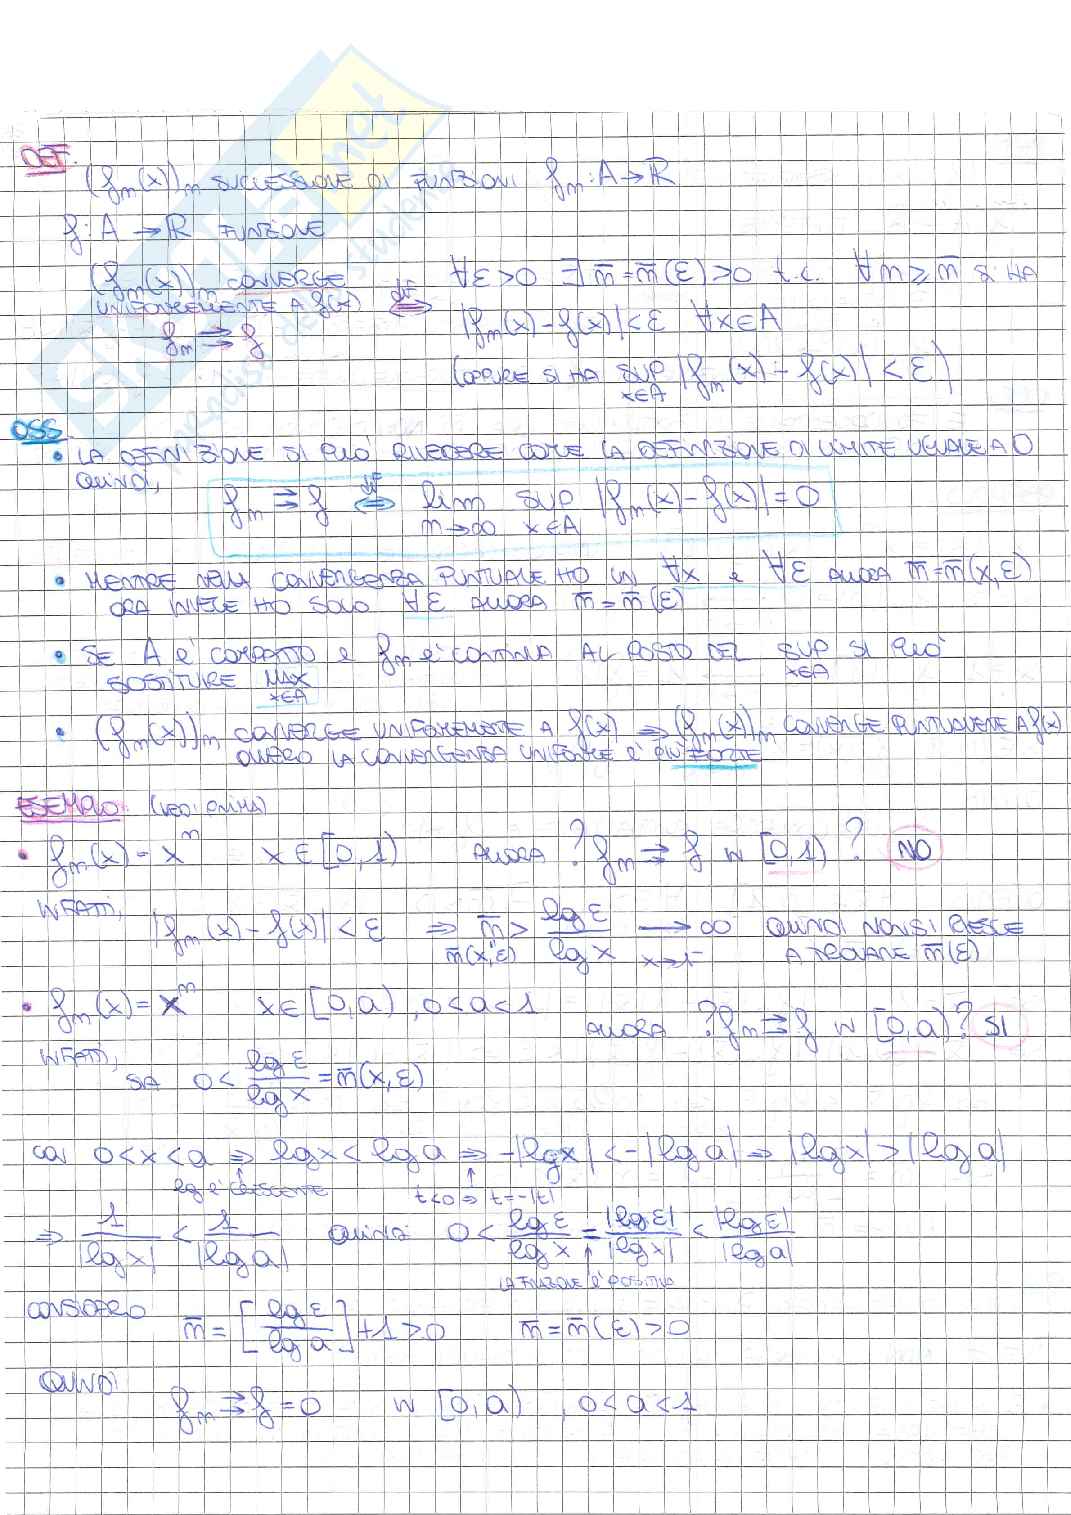 DEF.
(fₙ(x))ₙ SUCCESSIONE DI FUNZIONI fₙ: A → ℝ
f: A → ℝ FUNZIONE
(fₙ(x))ₙ CONVERGE UNIFORMEMENTE A f(x) ⇔(df) ∀ε>0 ∃ n̄ = n̄(ε)>0 t.c. ∀n ≥ n̄ SI HA
fₙ ⇉ f |fₙ(x) - f(x)| < ε ∀x∈A
(OPPURE SI HA SUP_{x∈A} |fₙ(x) - f(x)| < ε)
OSS.
• LA DEFINIZIONE SI PUÒ RIVEDERE COME LA DEFINIZIONE DI LIMITE UGUALE A 0
QUINDI,
fₙ ⇉ f ⇔(df) lim_{n→∞} SUP_{x∈A} |fₙ(x) - f(x)| = 0
• MENTRE NELLA CONVERGENZA PUNTUALE HO UN ∀x e ∀ε ALLORA n̄ = n̄(x,ε)
ORA INVECE HO SOLO ∀ε ALLORA n̄ = n̄(ε)
• SE A è COMPATTO e fₙ è CONTINUA AL POSTO DEL SUP_{x∈A} SI PUÒ
SOSTITUIRE MAX_{x∈A}
• (fₙ(x))ₙ CONVERGE UNIFORMEMENTE A f(x) ⇒ (fₙ(x))ₙ CONVERGE PUNTUALMENTE A f(x)
OVVERO LA CONVERGENZA UNIFORME È PIÙ FORTE
ESEMPIO (VEDI PRIMA)
• fₙ(x) = xⁿ x∈[0,1) ALLORA ? fₙ ⇉ f IN [0,1) ? NO
INFATTI,
|fₙ(x) - f(x)| < ε ⇒ n̄ > lg ε / lg x → ∞ QUINDI NON SI RIESCE
n̄(x,ε) x→1⁻ A TROVARE n̄(ε)
• fₙ(x) = xⁿ x∈[0,a), 0<a<1 ALLORA ? fₙ ⇉ f IN [0,a) ? SI
INFATTI,
SIA 0 < lg ε / lg x = n̄(x,ε)
con 0<x<a ⇒ lg x < lg a ⇒ -|lg x| < -|lg a| ⇒ |lg x| > |lg a|
lg è CRESCENTE t<0 ⇒ t=-|t|
⇒ 1/|lg x| < 1/|lg a| QUINDI 0 < lg ε / lg x = |lg ε| / |lg x| < |lg ε| / |lg a|
LA FRAZIONE è POSITIVA
CONSIDERO n̄ = [lg ε / lg a] + 1 > 0 n̄ = n̄(ε) > 0
QUINDI
fₙ ⇉ f = 0 IN [0,a), 0<a<1